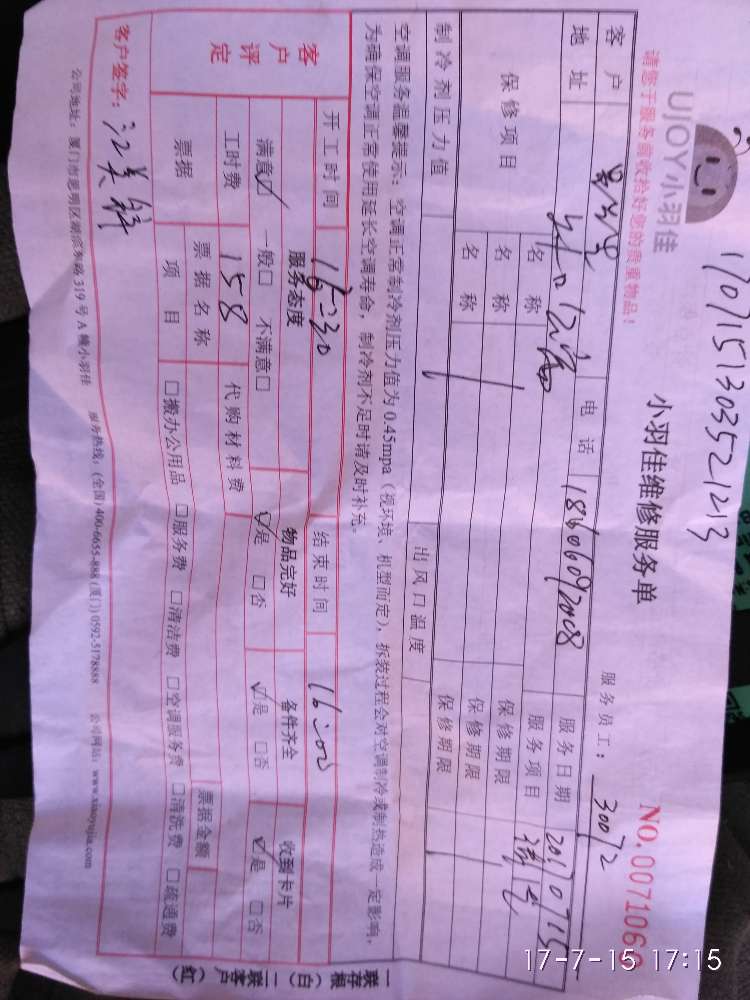 1707151303521213
UJOY小羽佳
请您于服务前收拾好您的贵重物品！
小羽佳维修服务单
NO.007106
服务员工：30072
客户
电话 18606092008
服务日期 20170715
地址
服务项目
保修项目
名称
保修期限
名称
保修期限
名称
保修期限
制冷剂压力值
出风口温度
空调服务温馨提示：空调正常制冷剂压力值为0.45mpa（视环境、机型而定），拆装过程会对空调制冷或制热造成一定影响，
为确保空调正常使用延长空调寿命，制冷剂不足时请及时补充。
开工时间
结束时间 16:00
客户评定
服务态度
物品完好
备件齐全
收到卡片
满意☑ 一般□ 不满意□
☑是 □否
☑是 □否
☑是 □否
工时费 158
代购材料费
票据金额
票据
票据名称
项目
□搬办公用品 □服务费 □清洁费 □空调服务费 □清洗费 □疏通费
客户签字：江美
公司地址：厦门市思明区湖滨东路319号A幢小羽佳 服务热线：(全国)400-6655-888 (厦门)0592-5178888 公司网站：www.xiaoyujia.com
一联存根（白）二联客户（红）
17-7-15 17:15